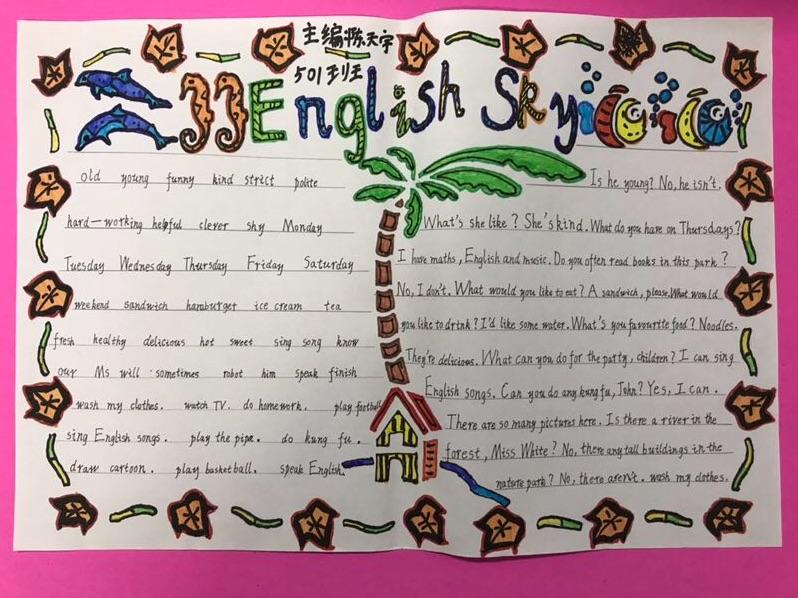 主编:陈天宇
501班
English Sky
old young funny kind strict polite
hard-working helpful clever shy Monday
Tuesday Wednesday Thursday Friday Saturday
weekend sandwich hamburger ice cream tea
fresh healthy delicious hot sweet sing song know
our Ms will sometimes robot him speak finish
wash my clothes. watch TV. do homework. play football
sing English songs. play the pipa. do kung fu.
draw cartoon. play basketball. speak English.
Is he young? No, he isn't.
What's she like? She's kind. What do you have on Thursdays?
I have maths, English and music. Do you often read books in this park?
No, I don't. What would you like to eat? A sandwich, please. What would
you like to drink? I'd like some water. What's you favourite food? Noodles.
They're delicious. What can you do for the party, children? I can sing
English songs. Can you do any kung fu, John? Yes, I can.
There are so many pictures here. Is there a river in the
forest, Miss White? No, there any tall buildings in the
nature park? No, there aren't. wash my clothes.